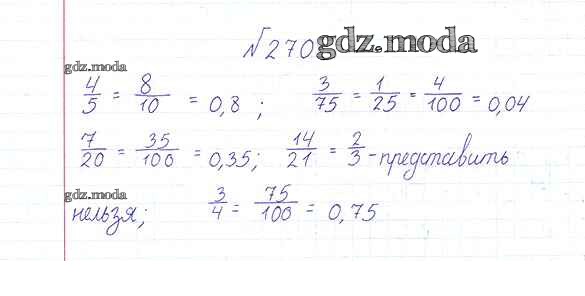 №270 gdz.moda
gdz.moda
4/5 = 8/10 = 0,8 ; 3/75 = 1/25 = 4/100 = 0,04
7/20 = 35/100 = 0,35; 14/21 = 2/3 - представить
gdz.moda
нельзя; 3/4 = 75/100 = 0,75